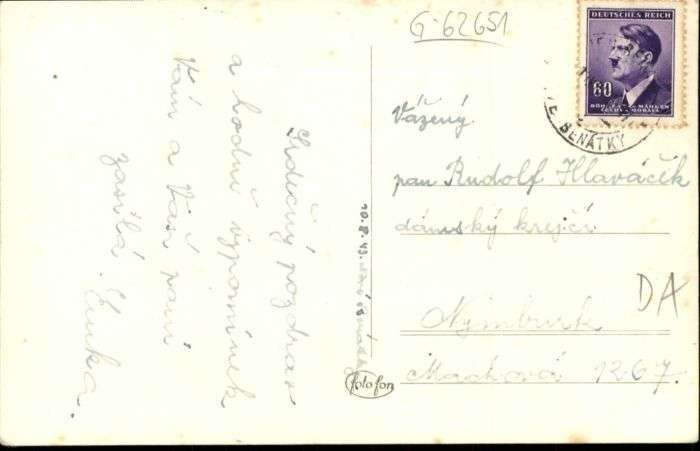 G-62651
DEUTSCHES REICH
60
BÖHMEN u. MÄHREN
ČECHY a MORAVA
BENÁTKY
Srdečný pozdrav
a hodně vzpomínek
Vám a Vaší paní
zasílá
Vážený
pan Rudolf Hlaváček
dámský krejčí
Nymburk
Machova 1267.
DA
fotofon